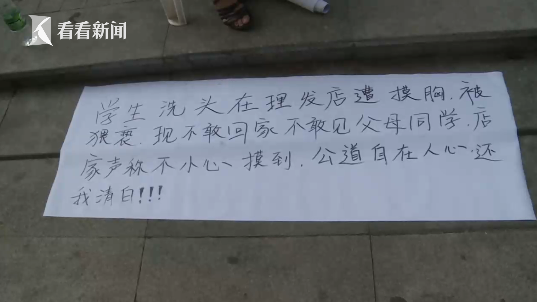 看看新闻
学生洗头在理发店遭摸胸,被
猥亵,现不敢回家不敢见父母同学,店
家声称不小心摸到,公道自在人心,还
我清白!!!